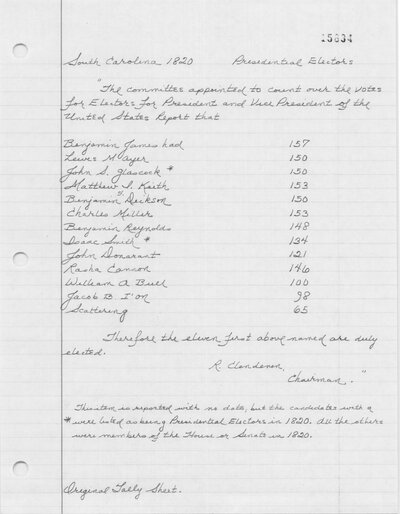 15834
South Carolina 1820 Presidential Electors
"The committee appointed to count over the votes
for Electors for President and Vice President of the
United States Report that
Benjamin James had 157
Lewis M Ayer 150
John S. Glascock * 150
Matthew I. Keith 153
Benjamin S. Dickson 150
Charles Miller 153
Benjamin Reynolds 148
Isaac Smith * 134
John Dunavant 121
Rasha Cannon 146
William A Bull 100
Jacob B I'on 98
Scattering 65
Therefore the eleven first above named are duly
elected.
R Clendenen
Chairman."
This item is reported with no date, but the candidates with a
* were listed as being Presidential Electors in 1820. All the others
were members of the House or Senate in 1820.
Original Tally Sheet.